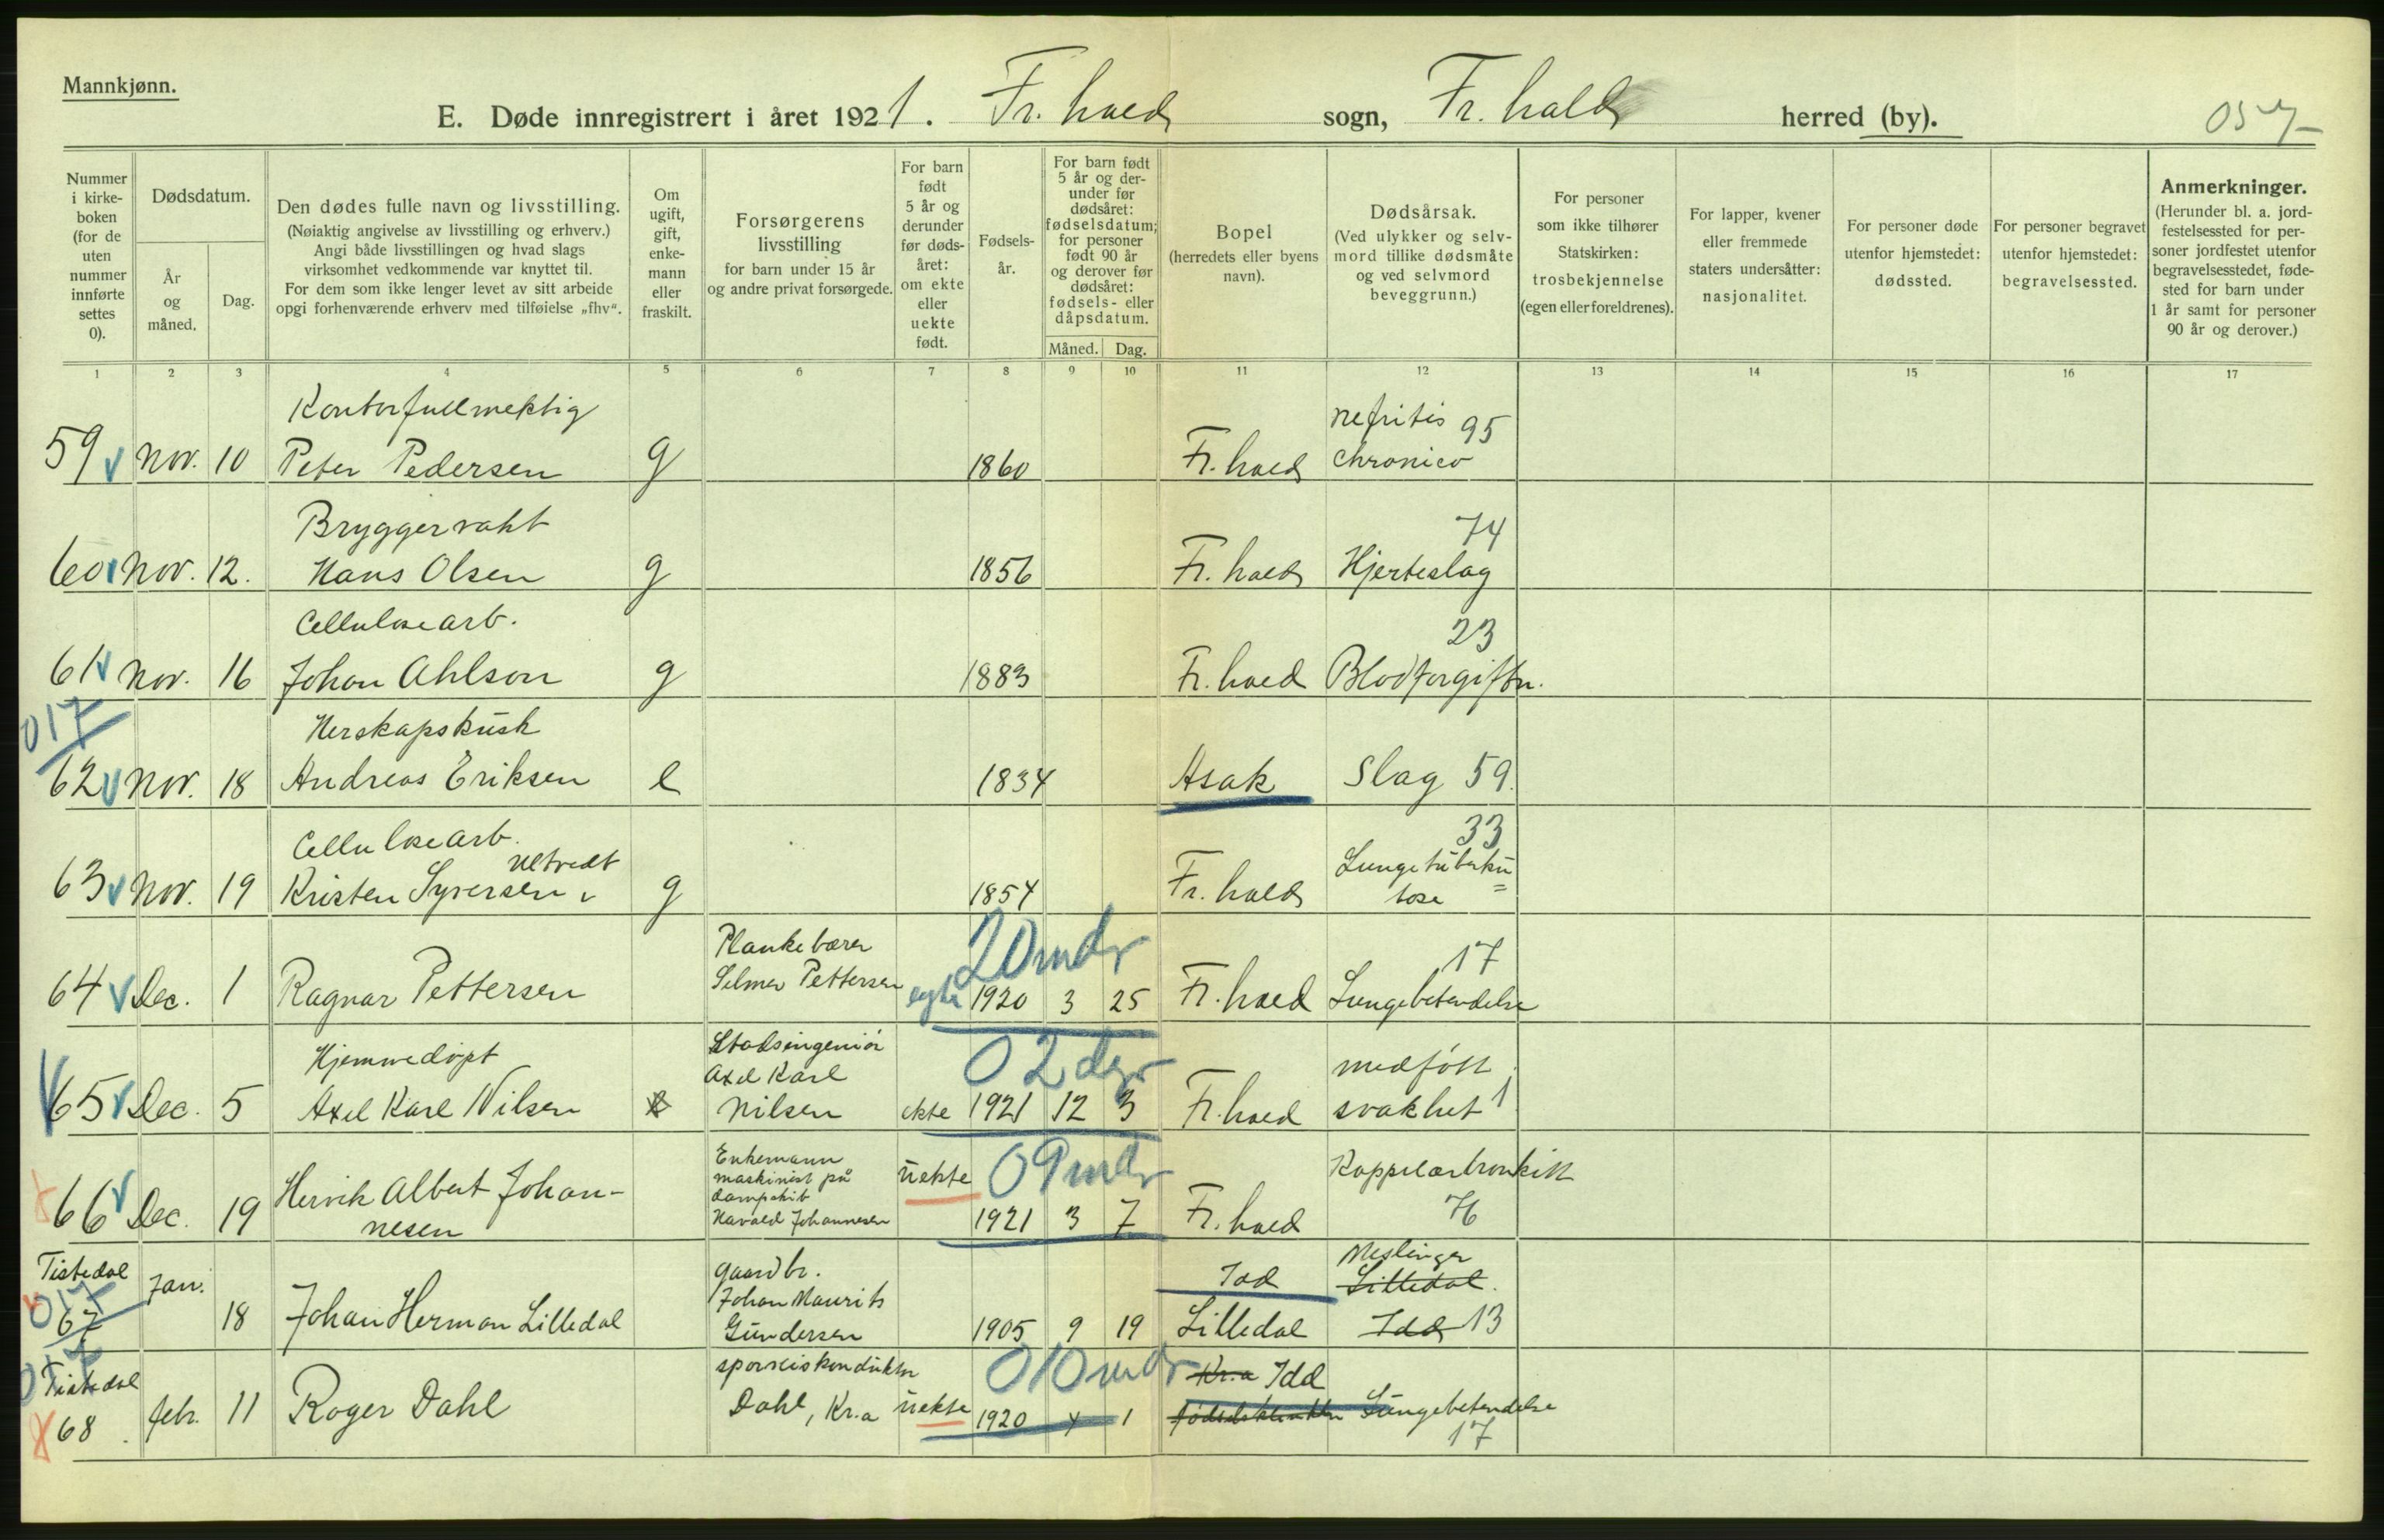 Mannkjønn.
E. Døde innregistrert i året 1921. Fr.hald sogn, Fr.hald herred (by).
057
Nummer i kirke-boken (for de uten nummer innførte settes 0).
Dødsdatum.
År og måned.
Dag.
Den dødes fulle navn og livsstilling.
(Nøiaktig angivelse av livsstilling og erhverv.)
Angi både livsstillingen og hvad slags
virksomhet vedkommende var knyttet til.
For dem som ikke lenger levet av sitt arbeide
opgi forhenværende erhverv med tilføielse „fhv“.
Om ugift, gift, enke-mann eller fraskilt.
Forsørgerens
livsstilling
for barn under 15 år
og andre privat forsørgede.
For barn født 5 år og derunder før døds-året: om ekte eller uekte født.
Fødsels-år.
For barn født 5 år og der-under før dødsåret: fødselsdatum; for personer født 90 år og derover før dødsåret: fødsels- eller dåpsdatum.
Måned. Dag.
Bopel
(herredets eller byens
navn).
Dødsårsak.
(Ved ulykker og selv-
mord tillike dødsmåte
og ved selvmord
beveggrunn.)
For personer
som ikke tilhører
Statskirken:
trosbekjennelse
(egen eller foreldrenes).
For lapper, kvener
eller fremmede
staters undersåtter:
nasjonalitet.
For personer døde
utenfor hjemstedet:
dødssted.
For personer begravet
utenfor hjemstedet:
begravelsessted.
Anmerkninger.
(Herunder bl. a. jord-
festelsessted for per-
soner jordfestet utenfor
begravelsesstedet, føde-
sted for barn under
1 år samt for personer
90 år og derover.)
1 2 3 4 5 6 7 8 9 10 11 12 13 14 15 16 17
Kontorfullmektig nefritis 95
59 Nov. 10 Peter Pedersen g 1860 Fr.hald chronico
Bryggervakt 74
60 Nov. 12. Hans Olsen g 1856 Fr.hald Hjerteslag
Cellulosearb. 23
61 Nov. 16 Johan Ahlson g 1883 Fr.hald Blodforgiftn.
017 Herskapskusk
62 Nov. 18 Andreas Eriksen e 1834 Asak Slag 59.
Cellulosearb. 33
Ultvedt Lungetuberku=
63 Nov. 19 Kristen Syversen g 1854 Fr.hald lose
Plankebærer 20 mdr 17
Selmer Pettersen
64 Dec. 1 Ragnar Pettersen egte 1920 3 25 Fr.hald Lungebetendelse
Hjemmedøpt Stadsingeniør 02 dgr medfött
Axel Karl
65 Dec. 5 Axel Karl Nilsen Nilsen ekte 1921 12 3 Fr.hald svakhet 1
Enkemann
maskinist på uekte 09 mdr Kappilærbronkitt
dampskib
66 Dec. 19 Henrik Albert Johan- Havald Johannesen 1921 3 7 Fr.hald 76
nesen
Tistedal Jan. gaardbr. Idd Meslinger
017 Johan Maurits Lilledal.
67 18 Johan Herman Lilledal Gundersen 1905 9 19 Lilledal Idd 13
017 Tistedal sporveiskonduktør 010 mdr Kr.a Idd
68 febr. 11 Roger Dahl Dahl, Kr.a uekte 1920 4 1 Lungebetendelse
17